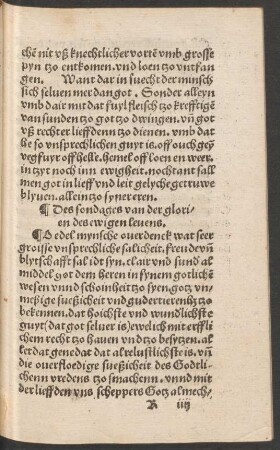 chē nit vß knechtlicher vortē vmb grosse
pyn tzo entkomen. vnd loen tzo vntfan
gen. Want dar in suecht der minsch
sich seluen mer dan got. Sonder alleyn
vmb dair mit dat fuyl fleisch tzo krefftigē
van sunden tzo got tzo dwingen. vñ got
vß rechter lieff denn tzo dienen. vmb dat
he so vnsprechlichen guyt is. off ouch gey
vegfuyr off helle. hemel off loen en weer.
in tzyt noch inn ewigheit. nochtant sall
men got in lieff vnd leit gelyche getruwe
blyuen. allein tzo synre eren.
¶ Des sondages van der glori-
en des ewigen leuens.
¶ Edel mynsche ouerdenck wat seer
groisse vnsprechliche salicheit. freude vñ
blytschafft sal idt syn. clair vnd sund al
middel got dem heren in synem gotlichē
wesen vnnd schoinheit tzo syen. gotz vn-
meßige sueßicheit vnd gudertierenütz tzo
bekennen. dat hoichste vnd wundlichste
guyt (dat got seluer is) ewelich mit erffli
chem recht tzo hauen vnd tzo besytzen. al
let dat gene dat al re lustlichste is. vñ
die ouerfloedige sueßicheit des Godtli-
chenn vredens tzo smachenn. vnnd mit
der lieff den vns scheppers Gotz almech-
R iiij